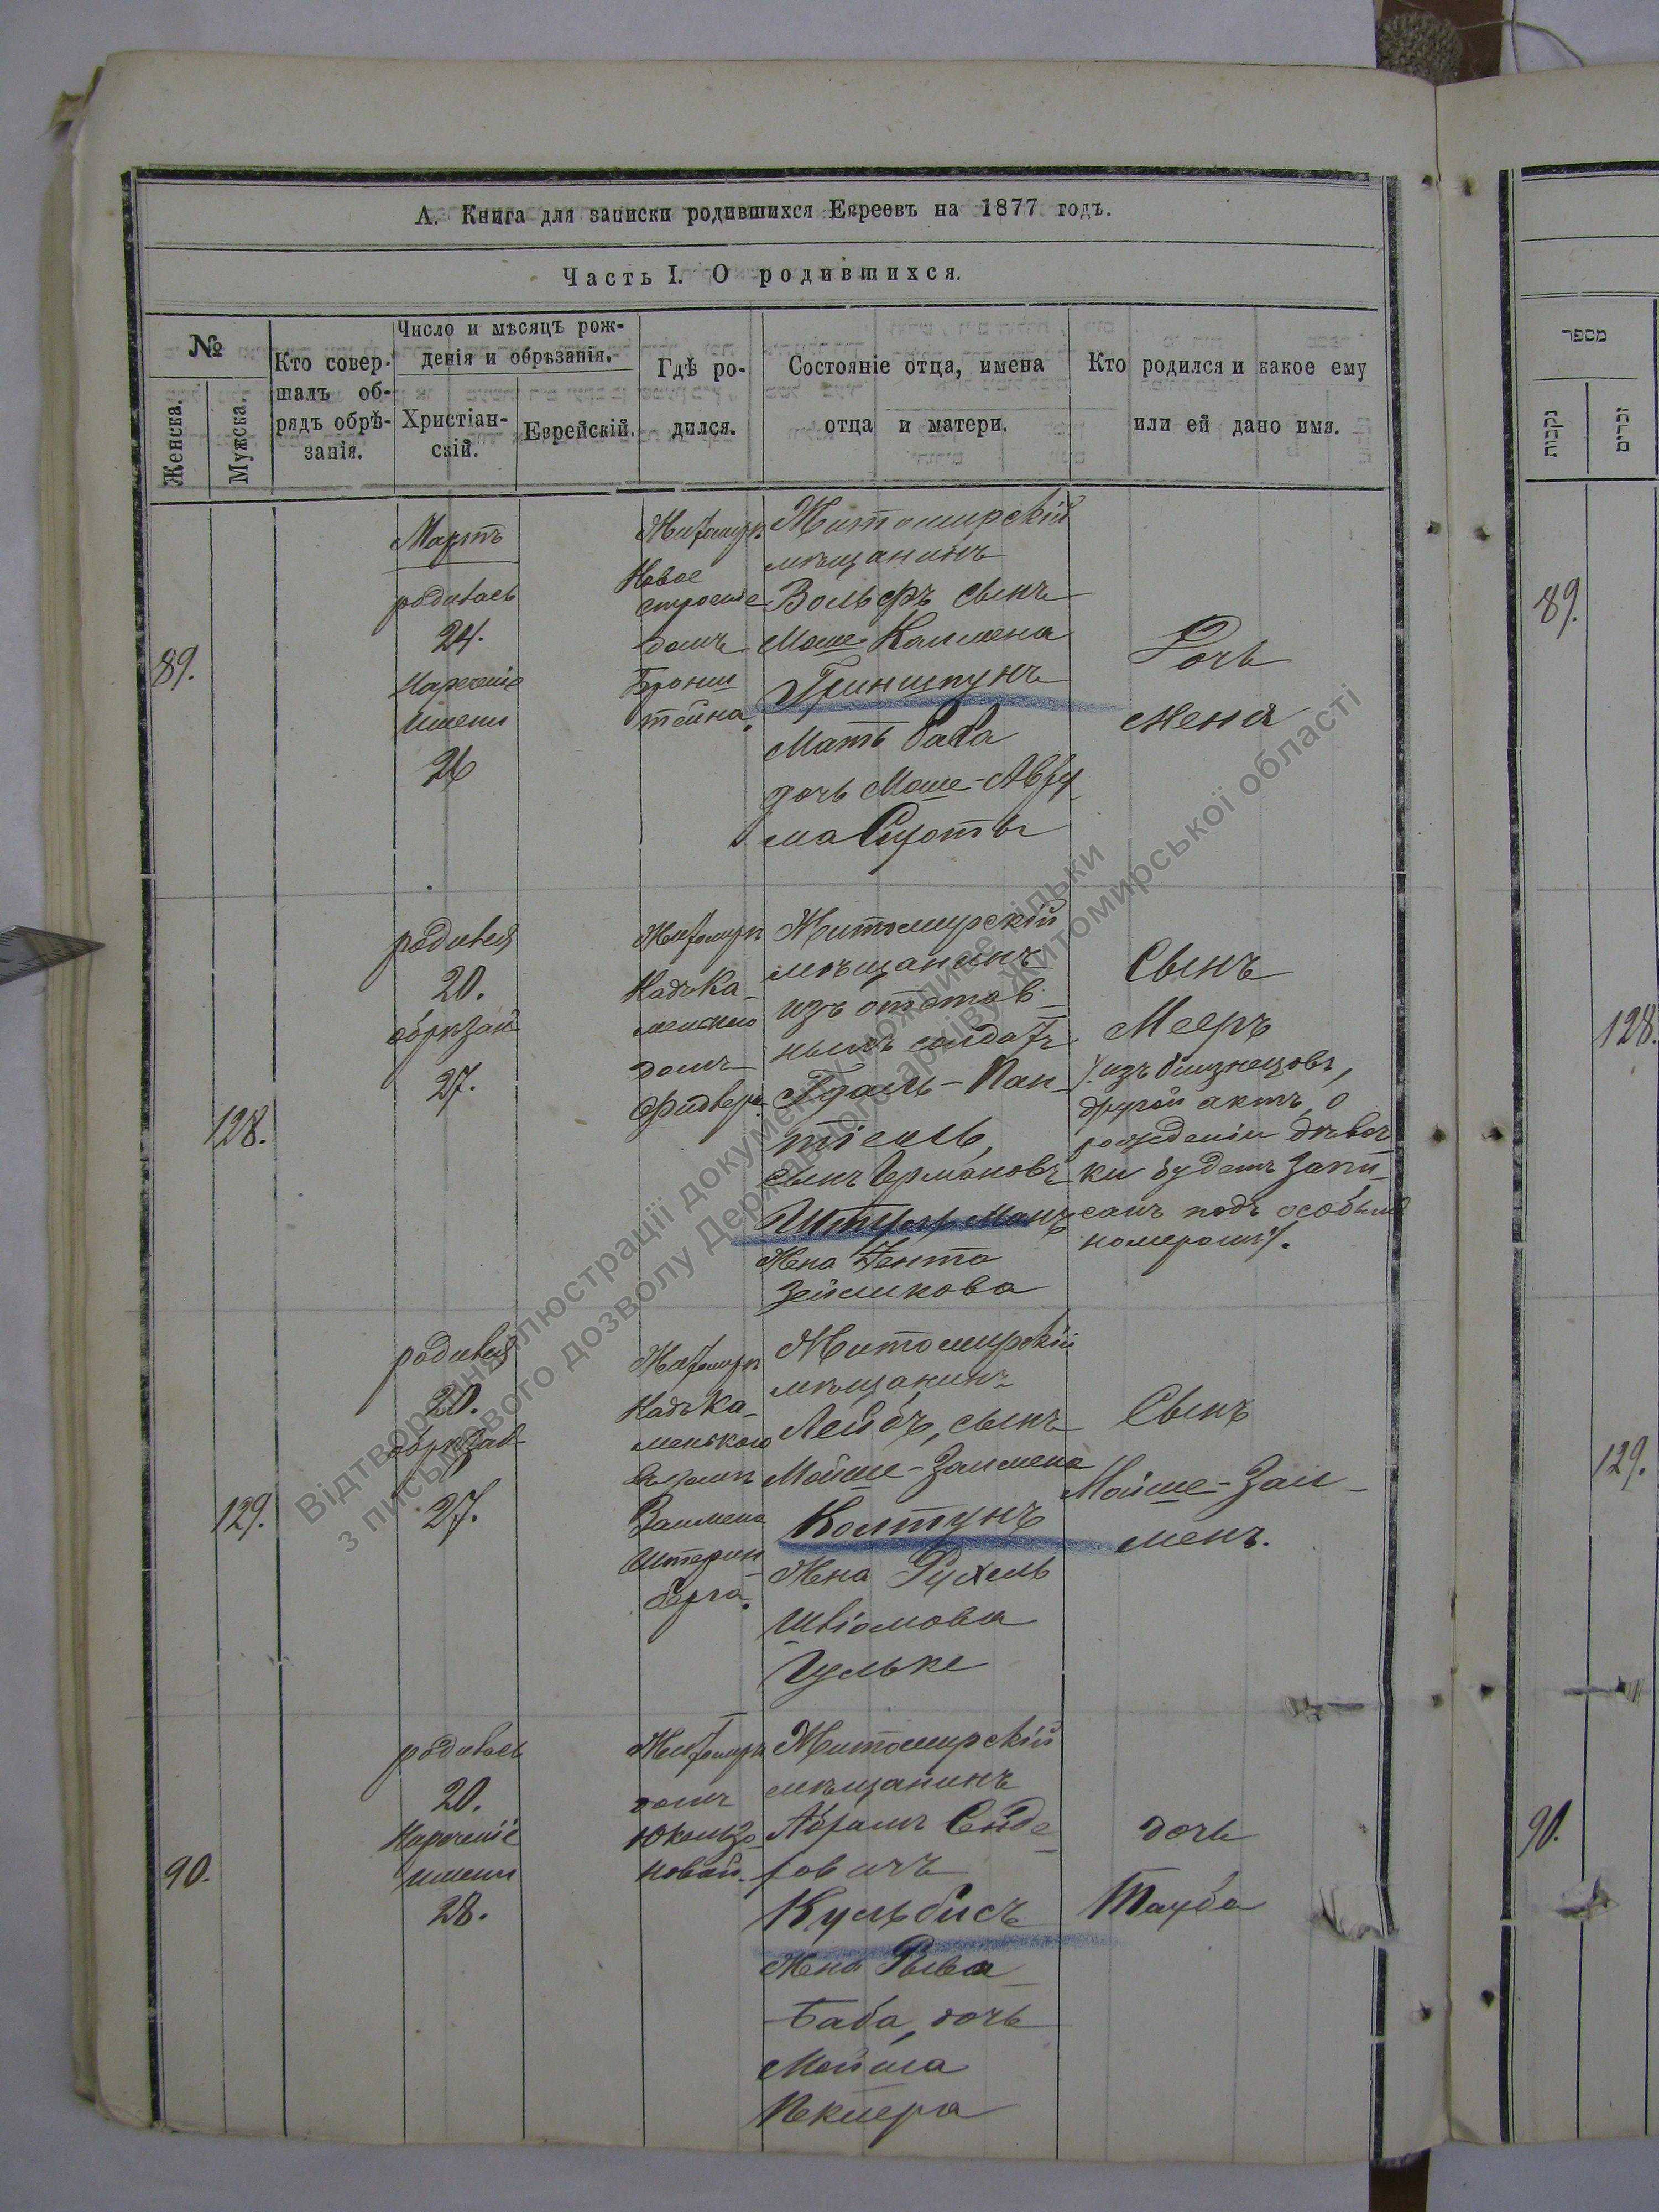 А. Книга для записки родившихся Евреевъ на 1877 годъ.
Часть I. О родившихся.
№
Женска.
Мужска.
Кто совер-
шалъ об-
рядъ обрѣ-
занія.
Число и мѣсяцъ рож-
денія и обрѣзанія.
Христіан-
скій.
Еврейскій.
Гдѣ ро-
дился.
Состояніе отца, имена
отца и матери.
Кто родился и какое ему
или ей дано имя.
89.
Мартъ
родилась
24.
Нареченіе
имени
26
Житомиръ
Новое
строеніе
домъ
Бронш
тейна.
Житомирскій
мѣщанинъ
Вольфъ сынъ
Моше Калмена
Гриншпунъ
Мать
дочь Моше-Авру
ма Сироты
Дочь
Хена
128.
родился
20.
обрѣзан
27.
Житомиръ
Надъ Ка-
менкою
домъ
Житомирскій
мѣщанинъ
изъ отстав-
ныхъ солдатъ
Гдаль-Пан-
тіель,
сынъ Германовъ
Штульманъ
Жена Гента
Зейликова
Сынъ
Мееръ
/:изъ близнецовъ,
другой актъ о
рожденіи дѣвоч
ки будетъ запи-
санъ подъ особымъ
номеромъ/.
129.
родился
20.
обрѣзан
27.
Житомиръ
Надъ Ка-
менкою
въ домѣ
Залмена
Штерен
берга.
Житомирскій
мѣщанинъ
Лейбъ, сынъ
Мойше-Залмена
Колтунъ
Жена Рухель
Шліомова
Гульке
Сынъ
Мойше-Зал-
менъ.
90.
родилась
20.
Нареченіе
имени
28.
Житомиръ
домъ
Житомирскій
мѣщанинъ
Абрамъ Сенде
ровичъ
Кульбисъ
Жена Рывка
Баба, дочь
Мойша
Пеклера
дочь
Тауба
מספר
נקבות
זכרים
89.
128.
129.
90.
Відтворення ілюстрації документу можливе тільки
з письмового дозволу Державного архіву Житомирської області